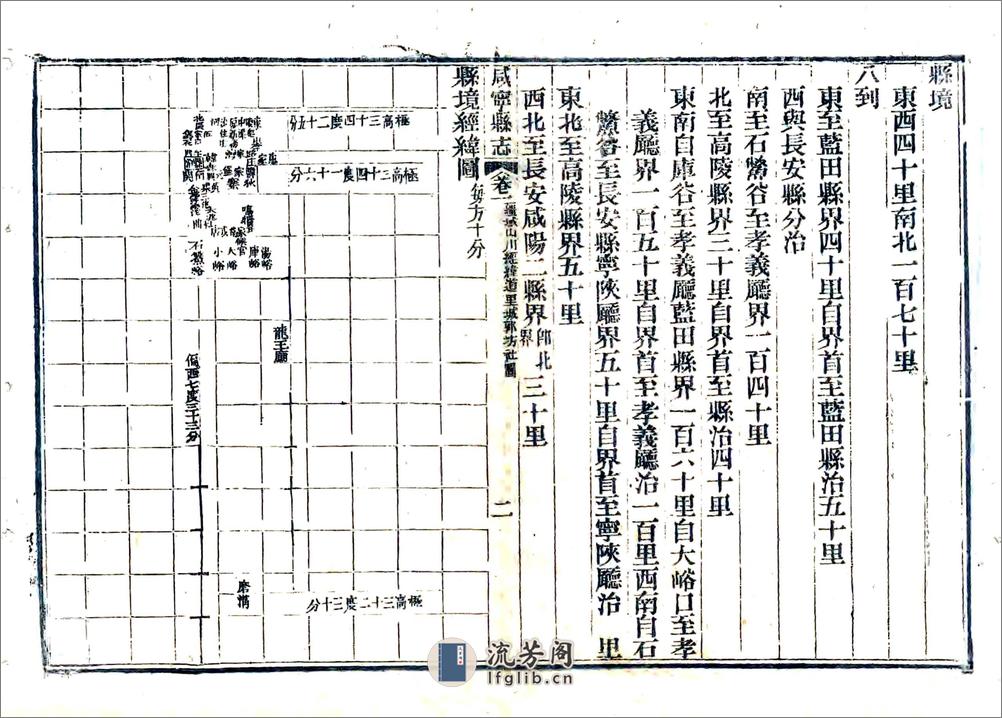 縣境
東西四十里南北一百七十里
八到
東至藍田縣界四十里自界首至藍田縣治五十里
西與長安縣分治
南至石鱉谷至孝義廳界一百四十里
北至高陵縣界三十里自界首至縣治四十里
東南自庫谷至孝義廳藍田縣界一百六十里自大峪口至孝
義廳界一百五十里自界首至孝義廳治一百里西南自石
鱉谷至長安縣寧陝廳界五十里自界首至寧陝廳治 里
東北至高陵縣界五十里
西北至長安咸陽二縣界即北界三十里
咸寧縣志 卷一 疆域山川經緯道里城郭坊社圖 二
縣境經緯圖 每方十分
極高三十四度二十五分
極高三十四度一十六分
湯峪
庫峪
大峪
小峪
石鱉峪
龍王廟
偏西七度三十三分
磨溝
極高三十二度三十分
流芳阁
lfglib.cn